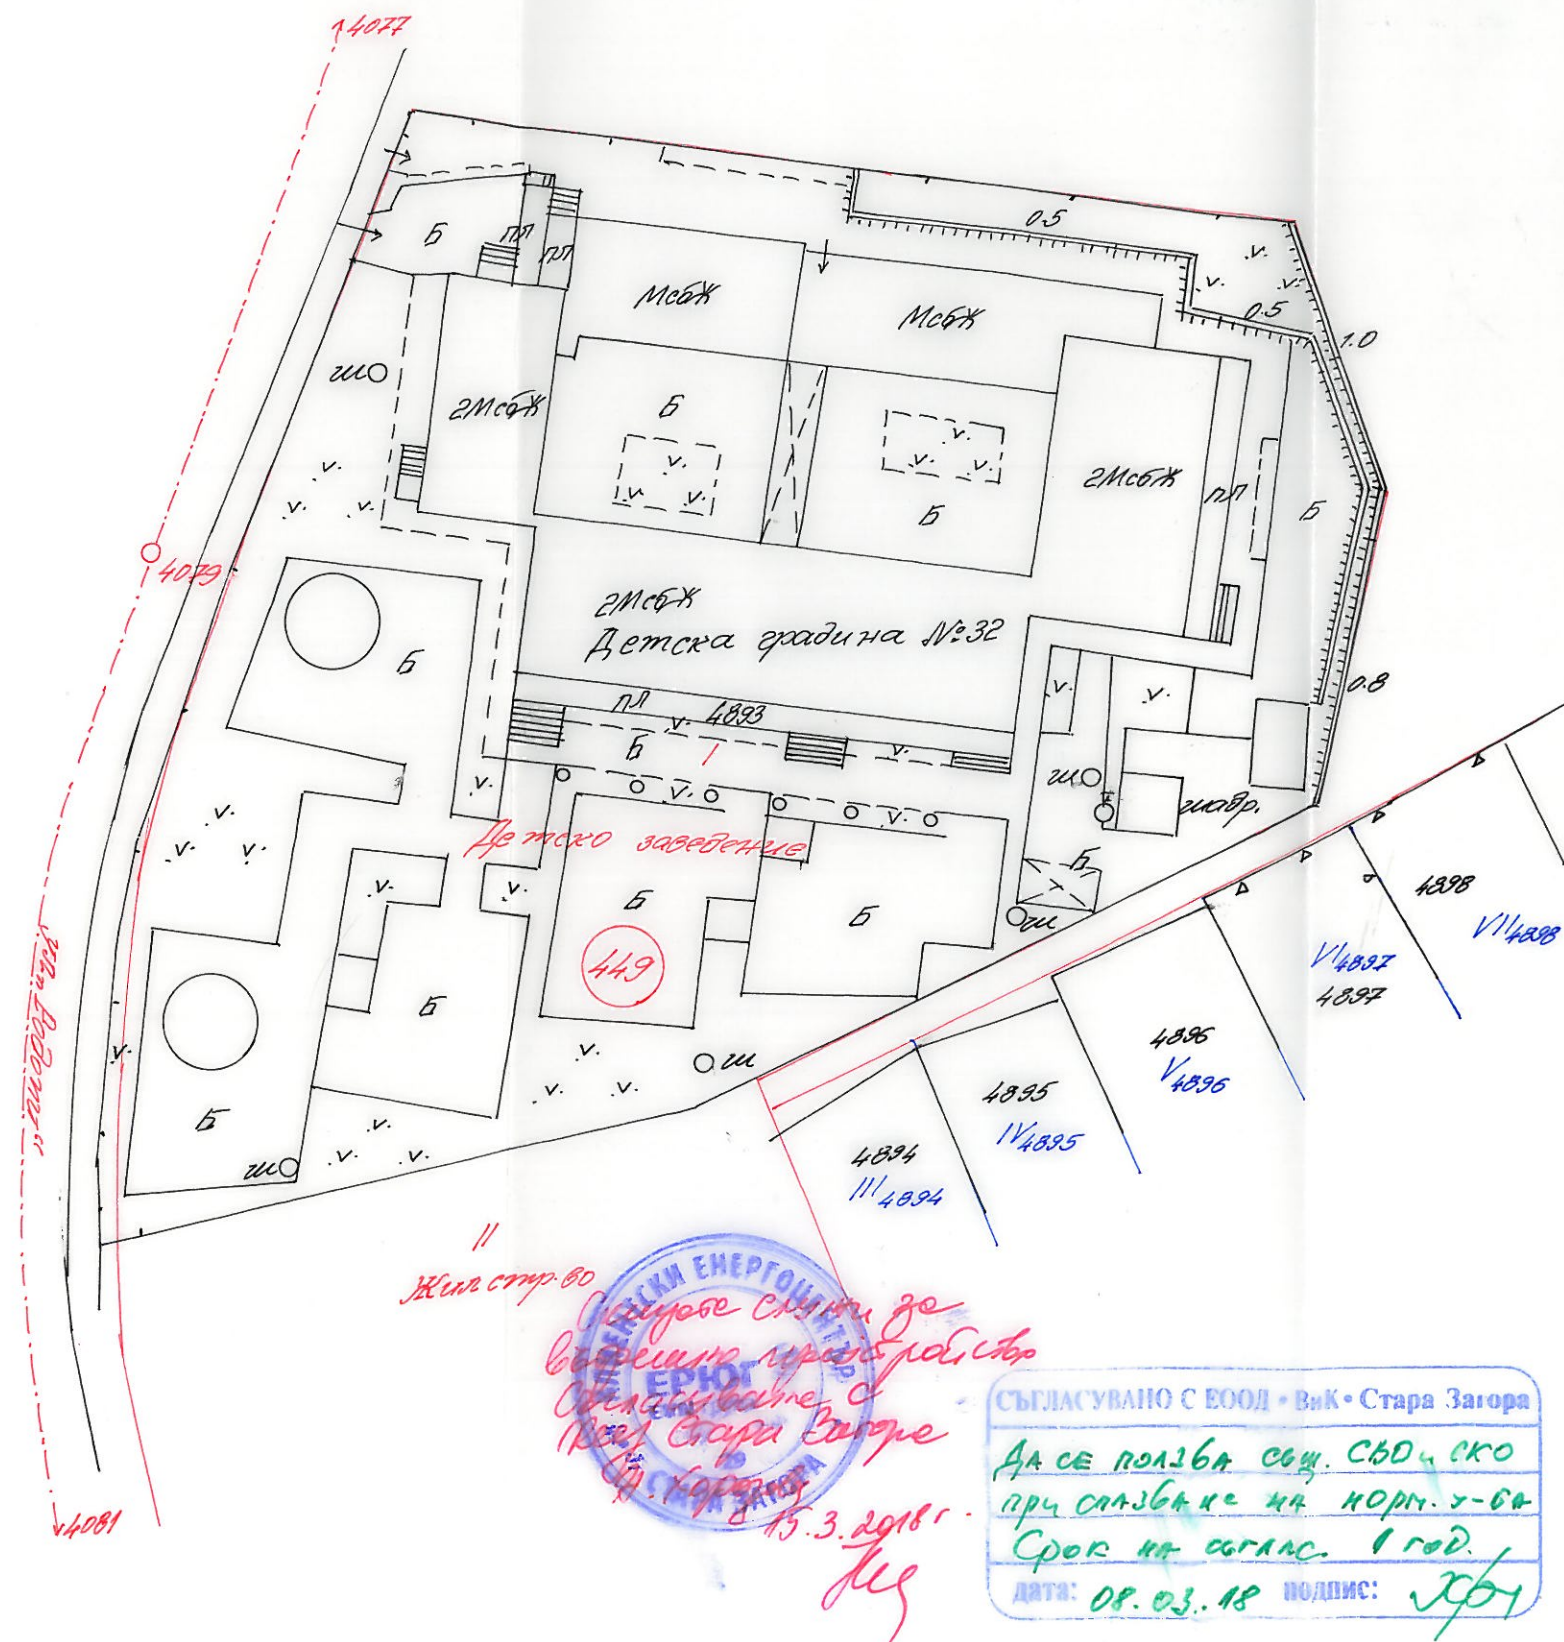 4077
0.5
Б
ПЛ
ПЛ
МсбЖ
МсбЖ
0.5
1.0
ш
2МсбЖ
Б
Б
2МсбЖ
ПЛ
Б
4079
2МсбЖ
Детска градина №32
Б
0.8
ПЛ
4893
Б
I
ш
шадр.
Детско заведение
Б
Б
Б
ш
449
Б
4898
VII 4898
VI 4897
4897
4896
V 4896
ш
4895
IV 4895
4894
III 4894
Б
ш
II
Жил стр.во
ЕРЮГ
Стара Загора
СТАРА ЗАГОРА
15.3.2018 г.
4081
СЪГЛАСУВАНО С ЕООД • ВиК • Стара Загора
ДА СЕ ПОЛЗВА същ. СВО и СКО
при спазване на норм. у-ва
Срок на съглас. 1 год.
дата: 08.03.18 подпис: